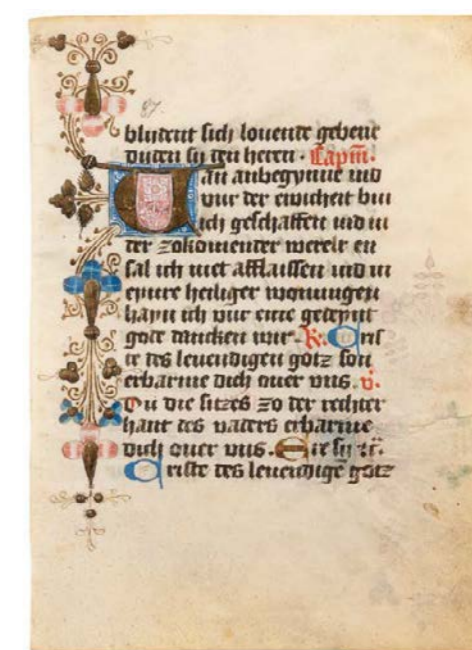 87.
sich louende gebene
dyden sy den heren. Capm̄.
Van anbegynne ind
vur der ewicheit bin
ich geschaffen ind in
der zokomender werelt en
sal ich niet afflaissen ind in
eynre heiliger wonungen
hayn ich vur eme gedeynt
gode dancken wir. R. Cris
te des leuendigen gotz son
erbarme dich ouer vns. v.
Du die sitzes zo der rechter
hant des vaders erbarme
dich ouer vns. Ere sy
Criste des leuendigē gotz